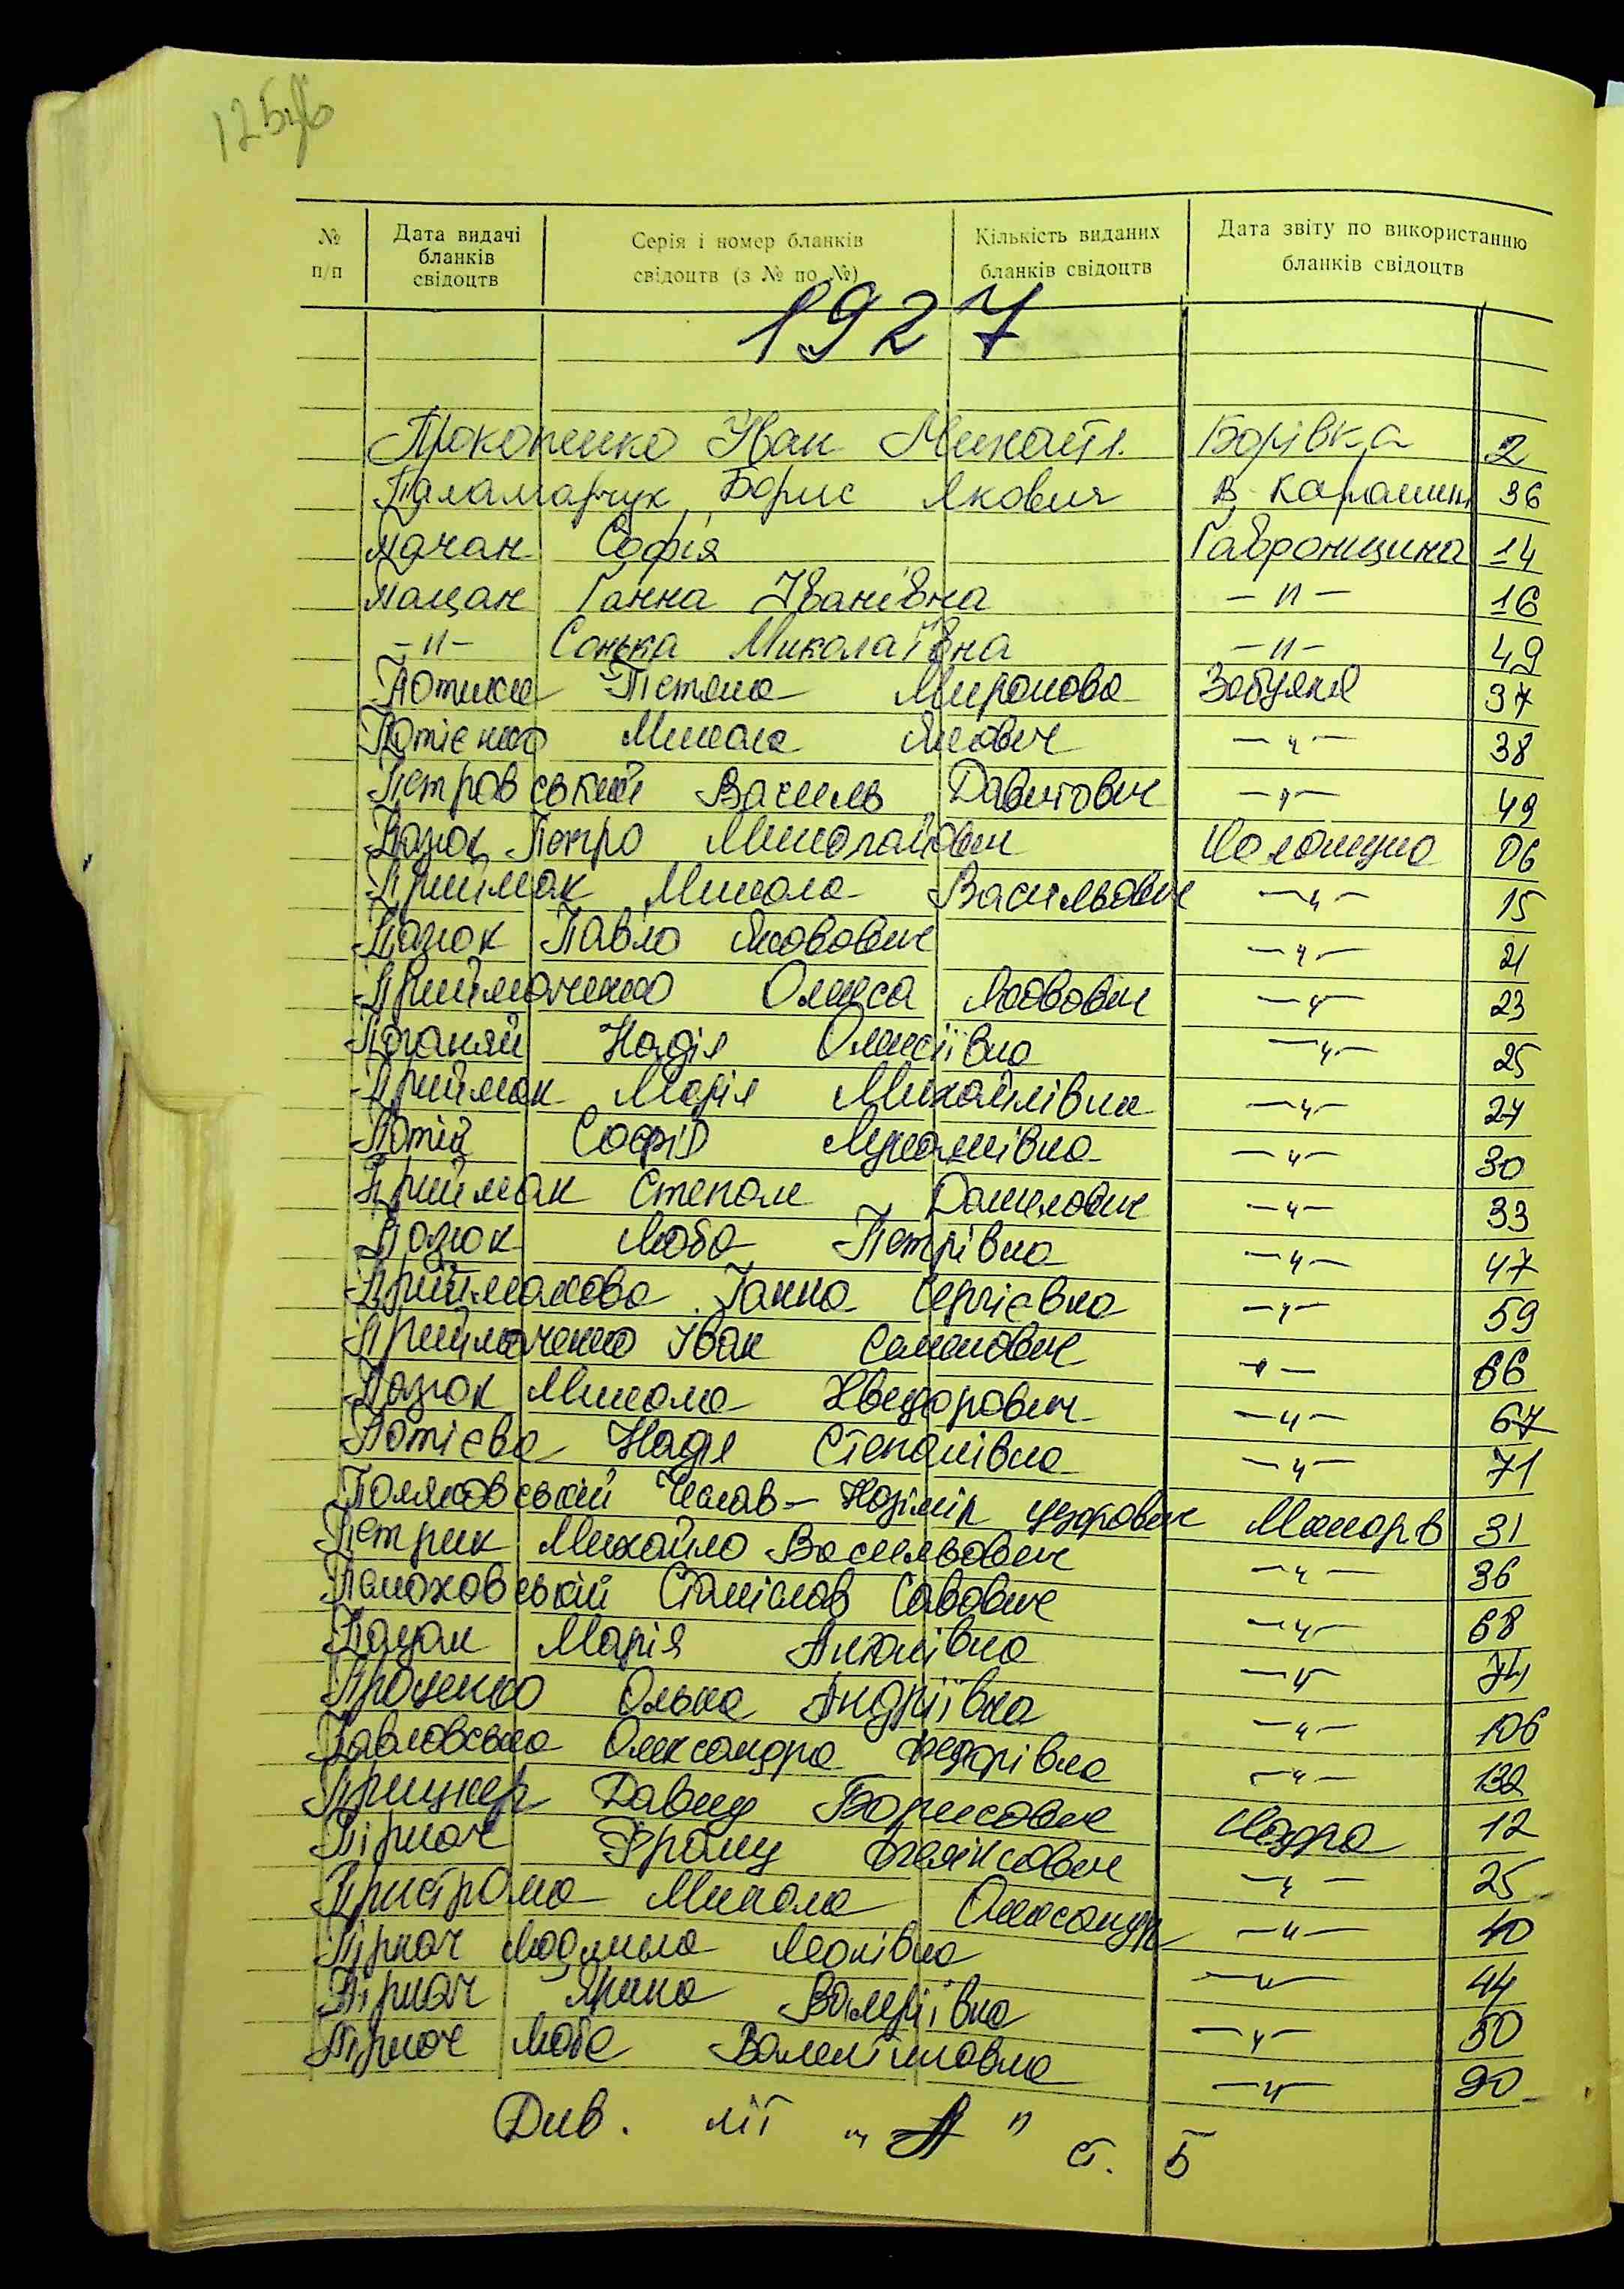 № п/п
Дата видачі бланків свідоцтв
Серія і номер бланків свідоцтв (з № по №)
Кількість виданих бланків свідоцтв
Дата звіту по використанню бланків свідоцтв
1927
Прокопенко Іван Борівка 2
Паламарчук Борис Якович 36
Пачан Софія Гавронщина 14
Пацан Ганна Іванівна – " – 16
– " – Сонька Миколаївна – " – 49
Миронова Забуяння 37
Потієнко Микола – " – 38
Петровський Василь Давитович – " – 49
Пазюк Петро Миколайович 06
Приймак Микола Васильович – " – 15
Пазюк Павло Яковович – " – 21
Приймаченко Олекса Яковович – " – 23
Поганяй Надія Олексіївна – " – 25
Приймак Марія Михайлівна – " – 27
Потій Софія – " – 30
Приймак Степан Данилович – " – 33
Пазюк Люба Петрівна – " – 47
Приймакова Ганна Сергієвна – " – 59
Приймаченко Іван Семенович – " – 66
Пазюк Микола Хведорович – " – 67
Потієва Надія Степанівна – " – 71
Поляковський Чеслав – Макарів 31
Петрик Михайло Васильович – " – 36
Станіслав Савович – " – 68
Пацан Марія Антонівна – " – 74
Проценко Олька Андріївна – " – 106
Павловська Олександра Федорівна – " – 132
Прицкер Давид Борисович Мадра 12
Пірнач Франц Феліксович – " – 25
Пристрома Микола Олександр – " – 40
Пірнач Людмила Леонівна – " – 44
Пірнач Ярина Валеріївна – " – 50
Пірнач Люба Валентиновна – " – 90
Див. літ „А" ст. 5